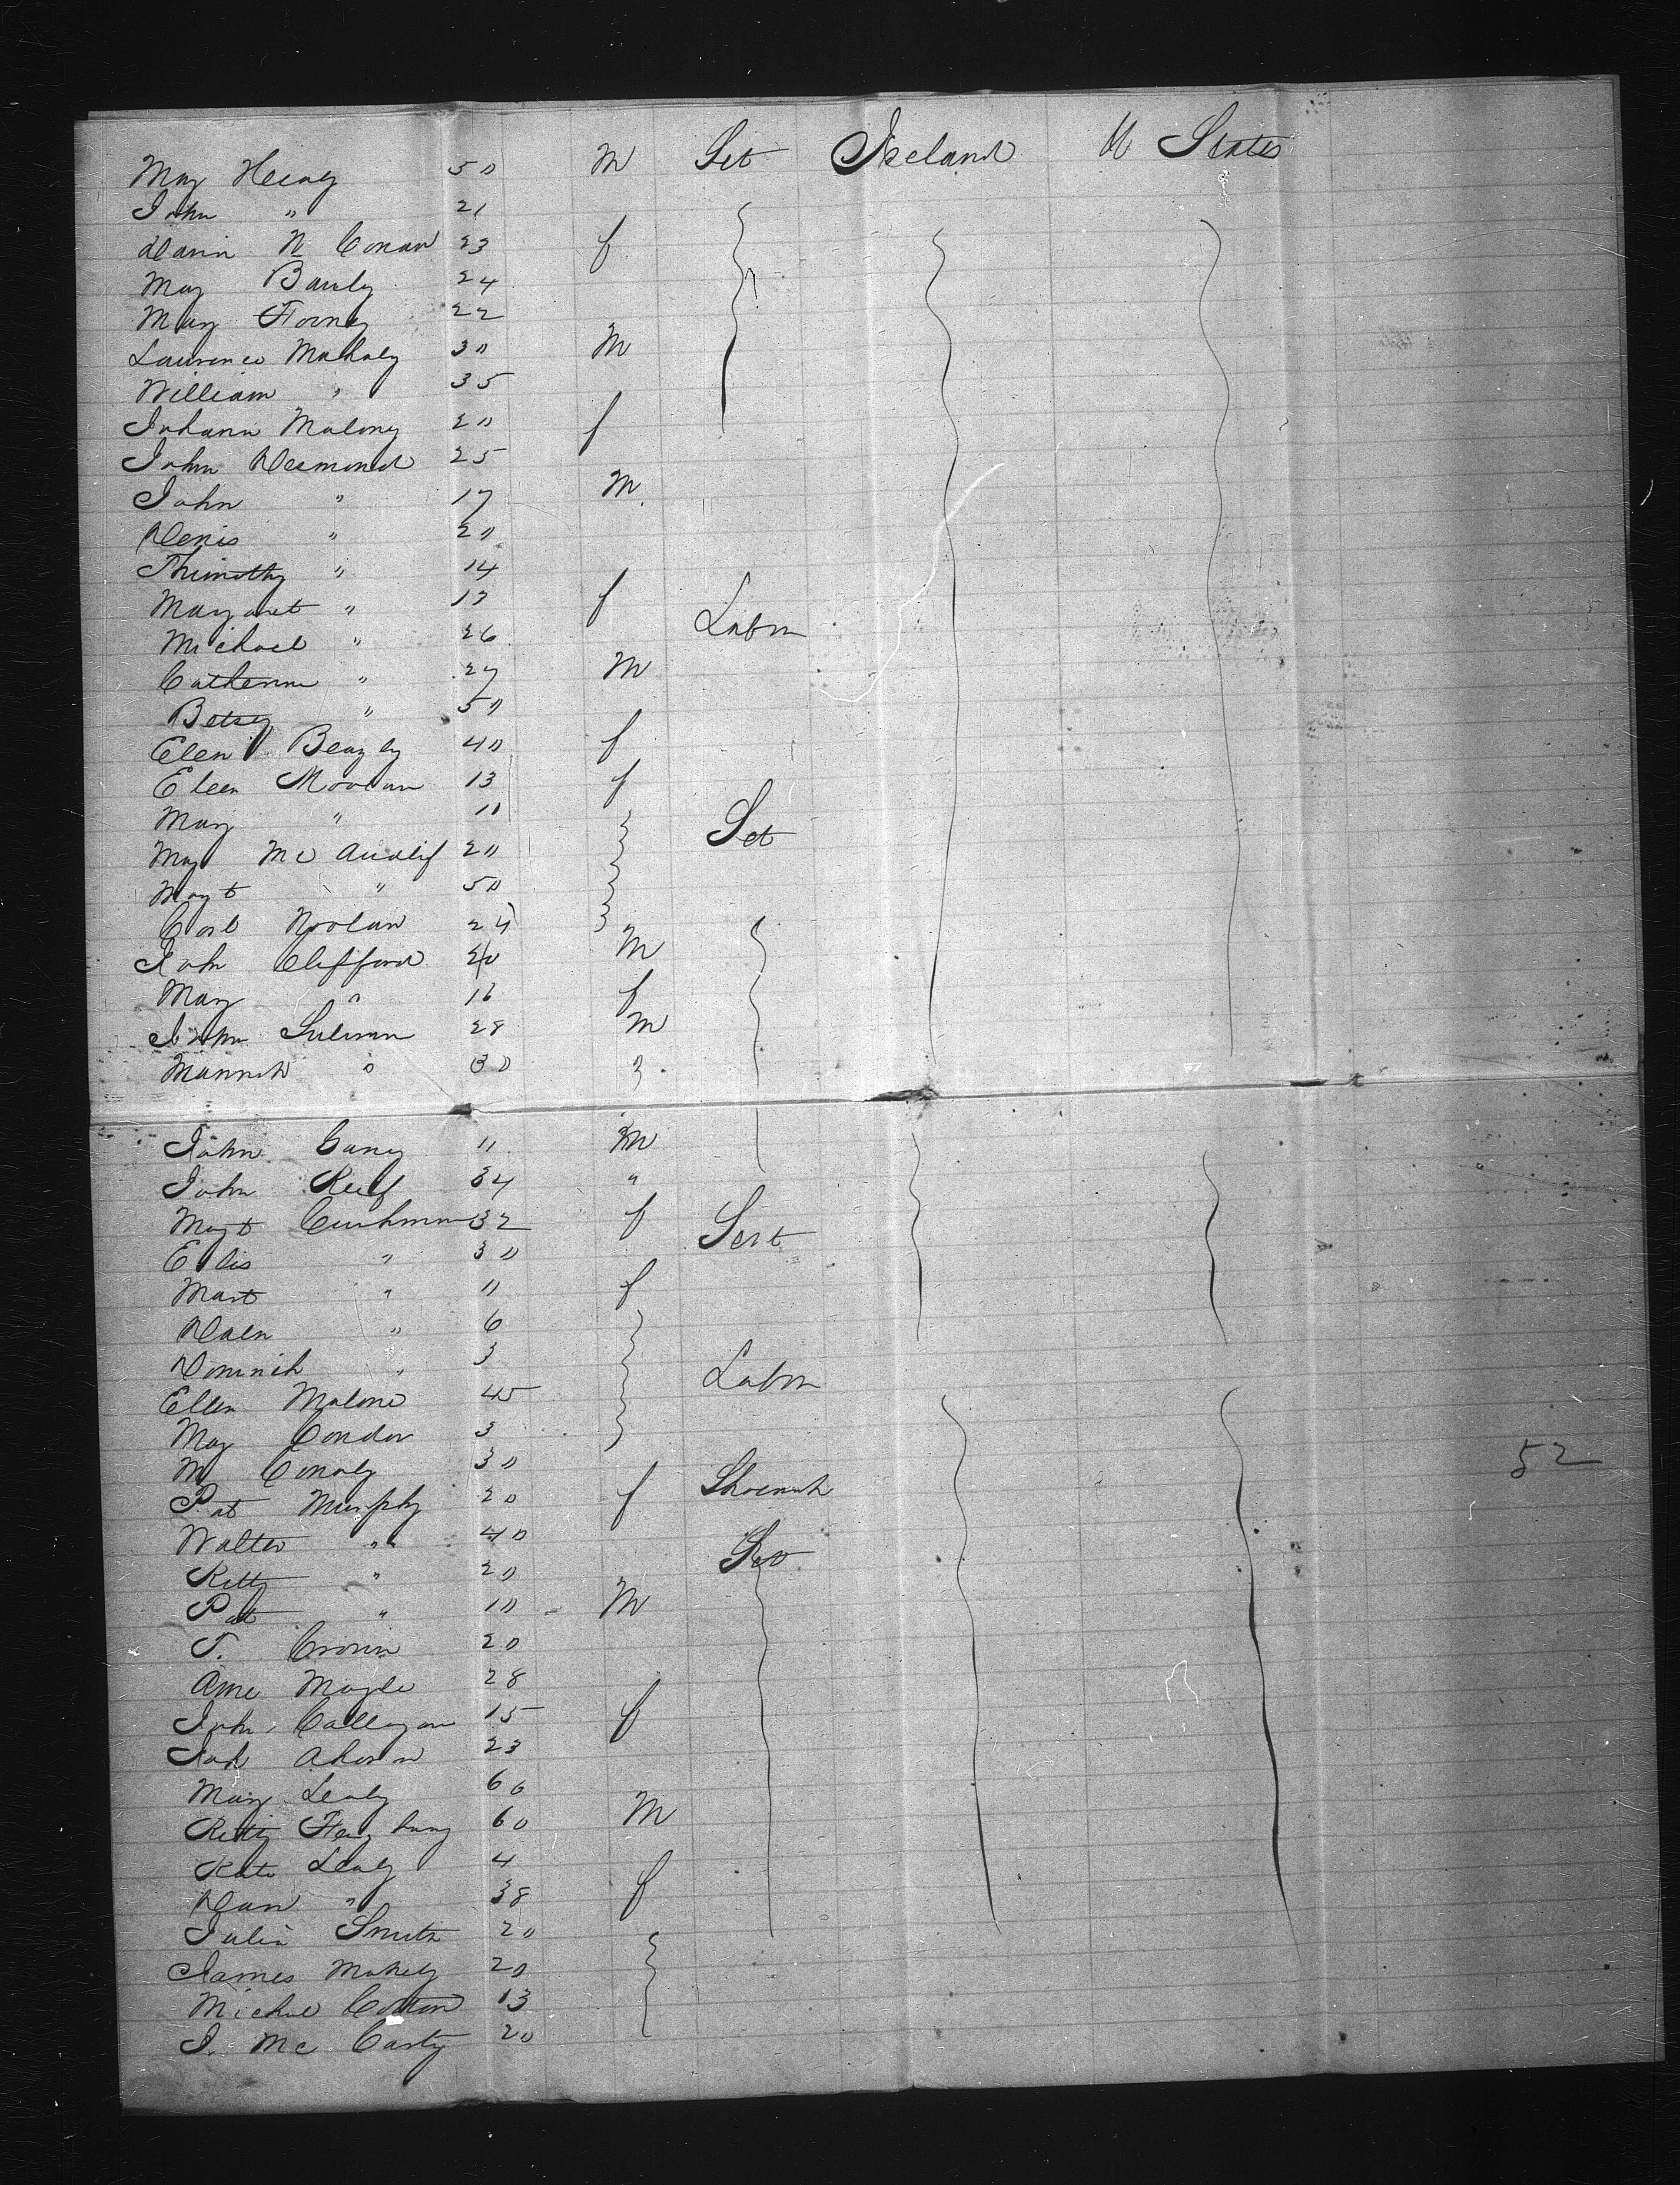 May Heney 50 M Set Ireland U States
John " 21
N Conan 23 f
May Bauly 24
Mary Toomy 22
Laurence Mahaly 30 M
William " 35
Johann Malony 20 f
John Desmond 25
John " 17 M
Denis " 20
Thimothy " 14
Margaret " 13 f
Michael " 26 Labor
Catherine " 27 M
Betsey " 50
Elen Beazly 40 f
Eleen Moolan 13 f
Mary " 11 Set
May Mc Auolif 20
Magt " 50
Noolan 24
John Clifford 20 M
Mary " 16 f
John Sulivan 28 M
Hannah " 30
John Carey 11 M
John Reilf 34 "
Magt Cushman 32 f Sert
Elis " 30
Mart " 11 f
Daen " 6
Dominik " 3 Labor
Ellen Malone 45
May Condon 3
M Conoly 30 52
Pat Murphy 20 f Shoemak
Walter " 40
Kitty " 20 Set
Pat " 10 M
T. Cronin 20
Ame Mogle 28
John Callagan 15 f
Joh Ahorn 23
Mary Lealy 60
Kitty 60 M
Kate Lealy 4
Dan " 38 f
Julia Smith 20
James Mahely 20
Michael Cotton 13
J. Mc Carty 20